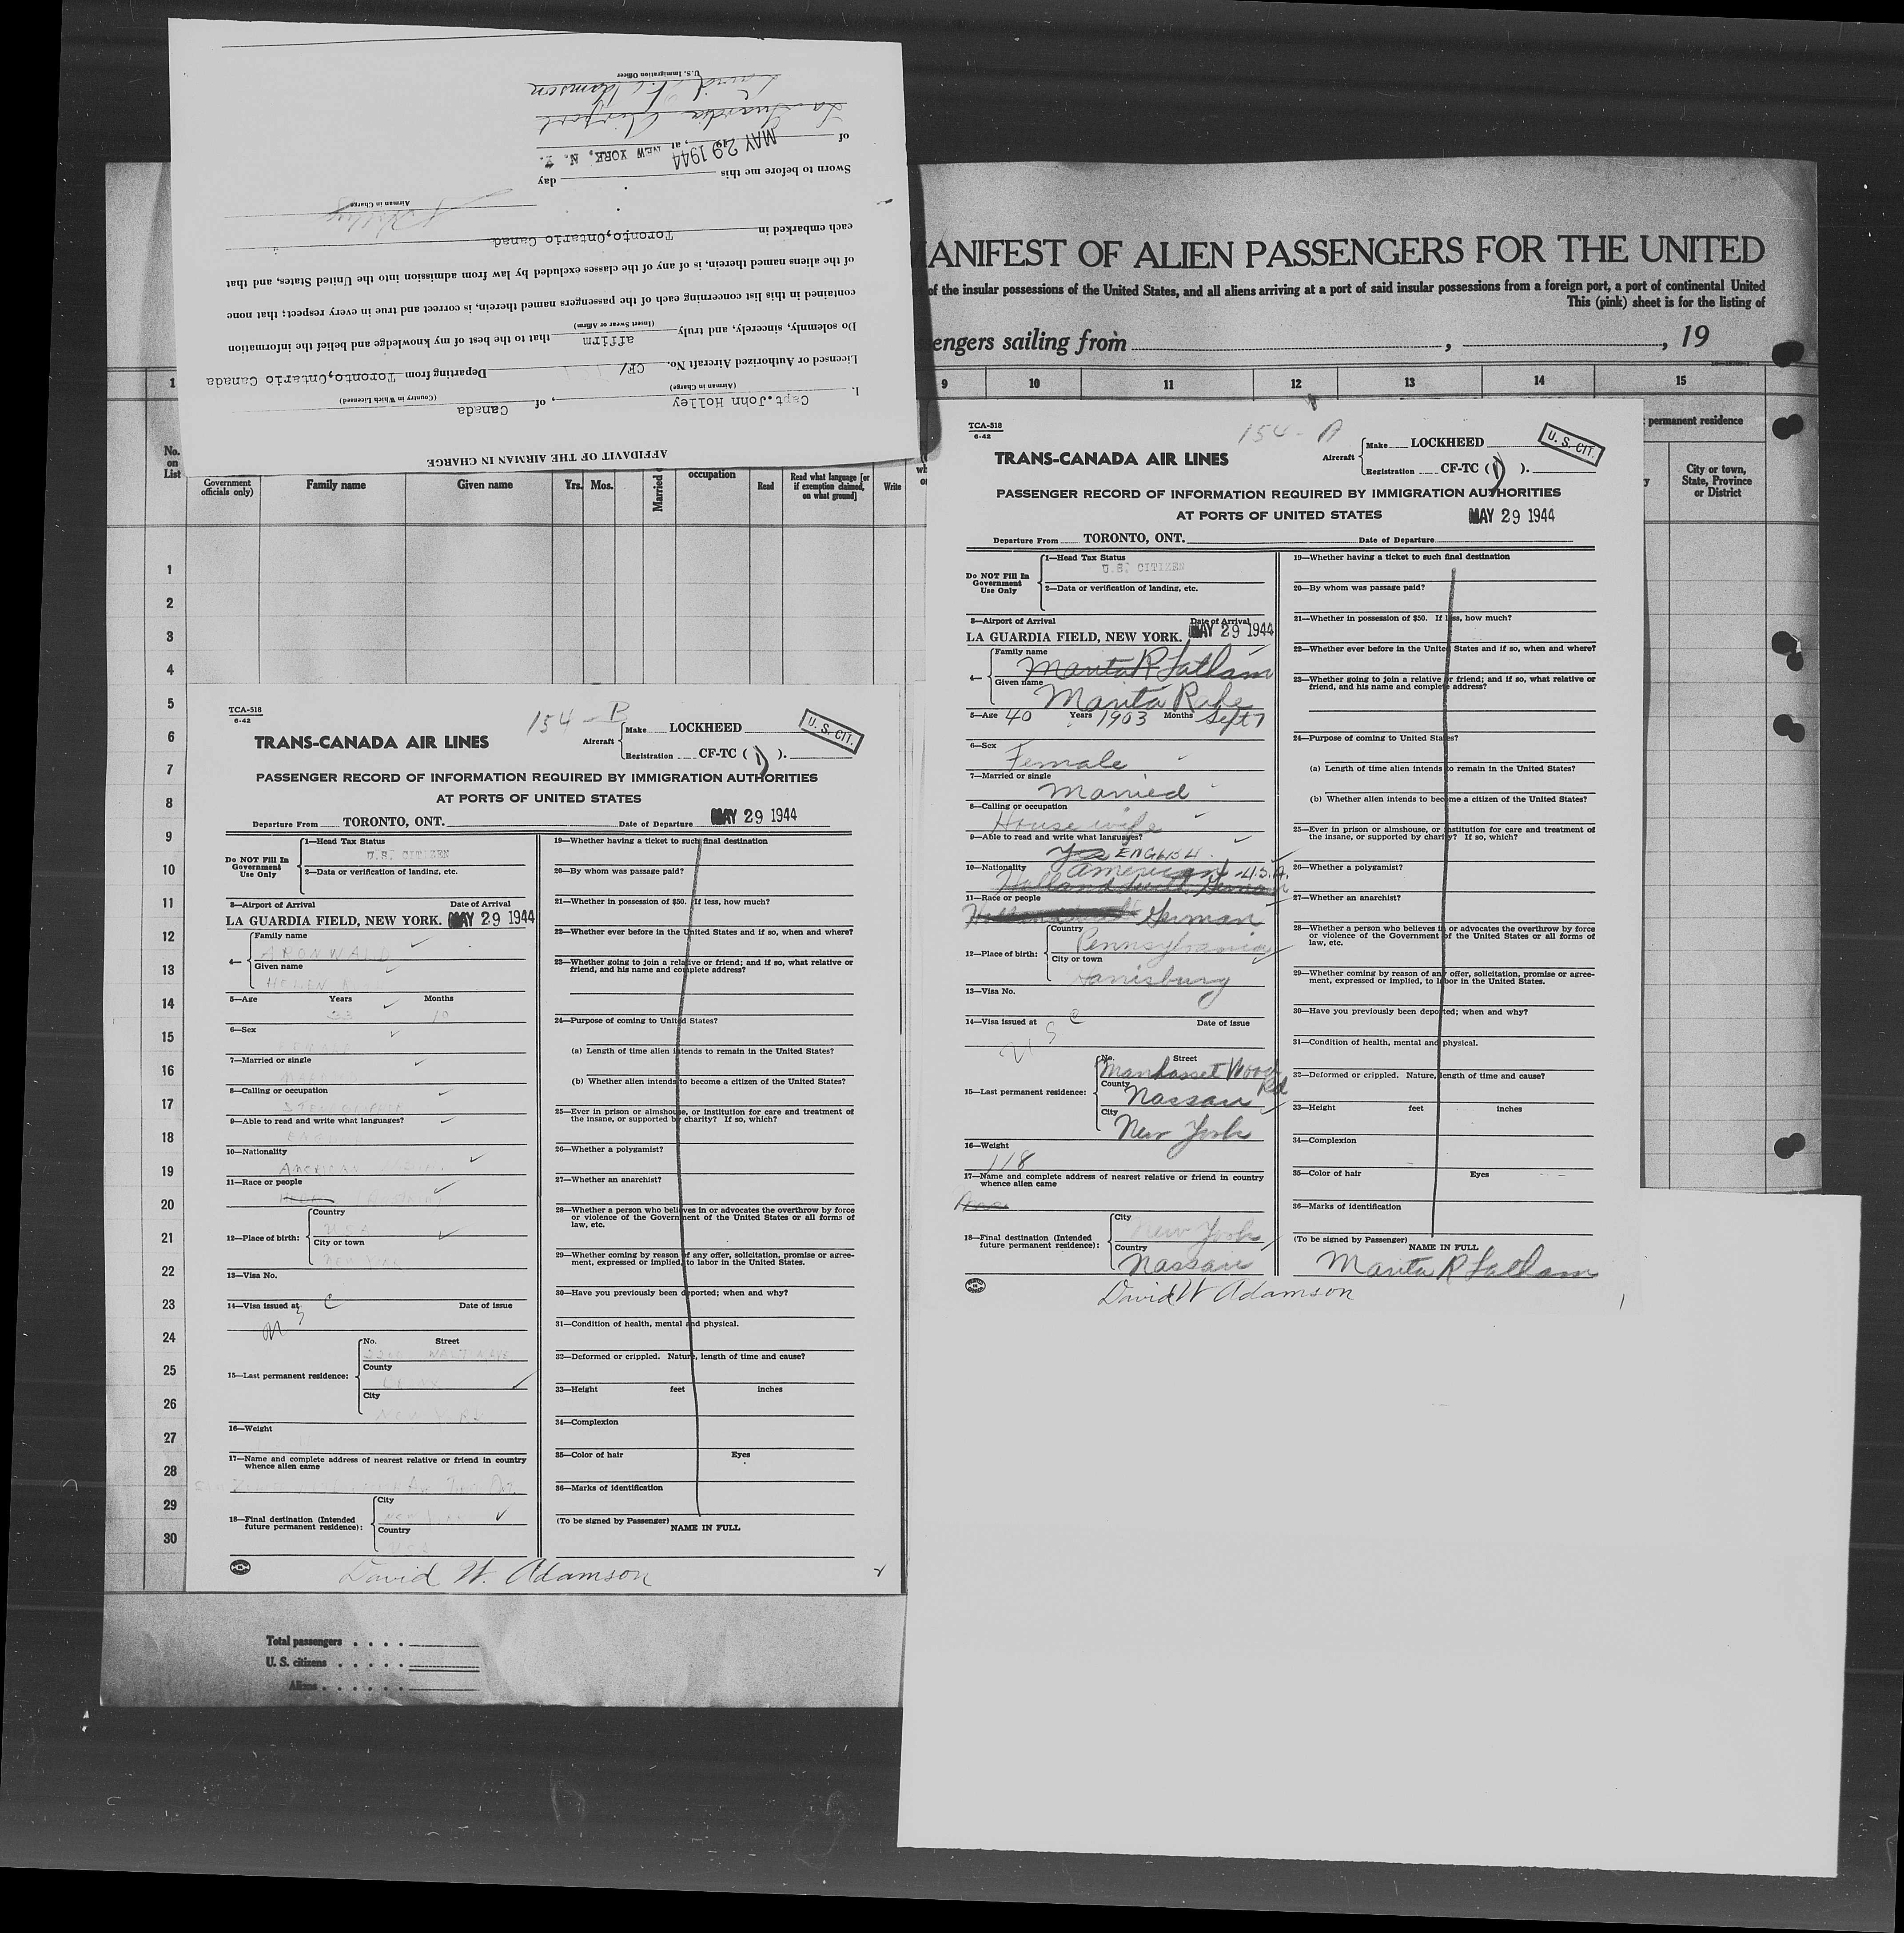 AFFIDAVIT OF THE AIRMAN IN CHARGE
I, Capt. John Holley, of Canada
(Airman in Charge) (Country in Which Licensed)
Licensed or Authorized Aircraft No. CF/ Departing from Toronto,Ontario Canada
Do solemnly, sincerely, and truly affirm that to the best of my knowledge and belief the information
(Insert Swear or Affirm)
contained in this list concerning each of the passengers named therein, is correct and true in every respect; that none
of the aliens named therein, is of any of the classes excluded by law from admission into the United States, and that
each embarked in Toronto,Ontario Canad
Airman in Charge
Sworn to before me this day
of MAY 29 1944, at NEW YORK, N. Y.
La Guardia Airport
David W Adamson
U.S. Immigration Officer
ANIFEST OF ALIEN PASSENGERS FOR THE UNITED
of the insular possessions of the United States, and all aliens arriving at a port of said insular possessions from a foreign port, a port of continental United
This (pink) sheet is for the listing of
engers sailing from , , 19
1 9 10 11 12 13 14 15
permanent residence
No. on List
Government officials only)
Family name
Given name
Yrs. Mos.
Married
occupation
Read
Read what language [or if exemption claimed, on what ground]
Write
City or town, State, Province or District
1
2
3
4
5
6
7
8
9
10
11
12
13
14
15
16
17
18
19
20
21
22
23
24
25
26
27
28
29
30
Total passengers . . . .
U. S. citizens . . . . .
Aliens . . . . . . .
TCA-518
6-42
154-B
TRANS-CANADA AIR LINES
Aircraft Make LOCKHEED
Registration CF-TC ( ).
U. S. CIT.
PASSENGER RECORD OF INFORMATION REQUIRED BY IMMIGRATION AUTHORITIES
AT PORTS OF UNITED STATES
MAY 29 1944
Departure From TORONTO, ONT. Date of Departure
Do NOT Fill In Government Use Only
1—Head Tax Status
U.S. CITIZEN
2—Data or verification of landing, etc.
3—Airport of Arrival Date of Arrival
LA GUARDIA FIELD, NEW YORK. MAY 29 1944
4— Family name
ARONWALD
Given name
HELEN
5—Age Years Months
33 10
6—Sex
FEMALE
7—Married or single
MARRIED
8—Calling or occupation
STENOGRAPHER
9—Able to read and write what languages?
10—Nationality
American
11—Race or people
12—Place of birth: Country
USA
City or town
NEW YORK
13—Visa No.
14—Visa issued at Date of issue
U S C
15—Last permanent residence: No. Street
WALTON AVE
County
BRONX
City
NEW YORK
16—Weight
17—Name and complete address of nearest relative or friend in country whence alien came
18—Final destination (Intended future permanent residence): City
NEW YORK
Country
USA
David W. Adamson
19—Whether having a ticket to such final destination
20—By whom was passage paid?
21—Whether in possession of $50. If less, how much?
22—Whether ever before in the United States and if so, when and where?
23—Whether going to join a relative or friend; and if so, what relative or friend, and his name and complete address?
24—Purpose of coming to United States?
(a) Length of time alien intends to remain in the United States?
(b) Whether alien intends to become a citizen of the United States?
25—Ever in prison or almshouse, or institution for care and treatment of the insane, or supported by charity? If so, which?
26—Whether a polygamist?
27—Whether an anarchist?
28—Whether a person who believes in or advocates the overthrow by force or violence of the Government of the United States or all forms of law, etc.
29—Whether coming by reason of any offer, solicitation, promise or agreement, expressed or implied, to labor in the United States.
30—Have you previously been deported; when and why?
31—Condition of health, mental and physical.
32—Deformed or crippled. Nature, length of time and cause?
33—Height feet inches
34—Complexion
35—Color of hair Eyes
36—Marks of identification
(To be signed by Passenger)
NAME IN FULL
TCA-518
6-42
154-A
TRANS-CANADA AIR LINES
Aircraft Make LOCKHEED
Registration CF-TC ( ).
U. S. CIT.
PASSENGER RECORD OF INFORMATION REQUIRED BY IMMIGRATION AUTHORITIES
AT PORTS OF UNITED STATES
MAY 29 1944
Departure From TORONTO, ONT. Date of Departure
Do NOT Fill In Government Use Only
1—Head Tax Status
U.S. CITIZEN
2—Data or verification of landing, etc.
3—Airport of Arrival Date of Arrival
LA GUARDIA FIELD, NEW YORK. MAY 29 1944
4— Family name
Marita R Latham
Given name
Marita Rahe
5—Age 40 Years 1903 Months Sept 7
6—Sex
Female
7—Married or single
Married
8—Calling or occupation
House wife
9—Able to read and write what languages?
Yes ENGLISH
10—Nationality
American - U.S.A.
11—Race or people
German
12—Place of birth: Country
Pennsylvania
City or town
Harrisburg
13—Visa No.
14—Visa issued at Date of issue
U S C
15—Last permanent residence: No. Street
Manhasset Wood Rd
County
Nassau
City
New York
16—Weight
118
17—Name and complete address of nearest relative or friend in country whence alien came
18—Final destination (Intended future permanent residence): City
New York
Country
Nassau
David W Adamson
19—Whether having a ticket to such final destination
20—By whom was passage paid?
21—Whether in possession of $50. If less, how much?
22—Whether ever before in the United States and if so, when and where?
23—Whether going to join a relative or friend; and if so, what relative or friend, and his name and complete address?
24—Purpose of coming to United States?
(a) Length of time alien intends to remain in the United States?
(b) Whether alien intends to become a citizen of the United States?
25—Ever in prison or almshouse, or institution for care and treatment of the insane, or supported by charity? If so, which?
26—Whether a polygamist?
27—Whether an anarchist?
28—Whether a person who believes in or advocates the overthrow by force or violence of the Government of the United States or all forms of law, etc.
29—Whether coming by reason of any offer, solicitation, promise or agreement, expressed or implied, to labor in the United States.
30—Have you previously been deported; when and why?
31—Condition of health, mental and physical.
32—Deformed or crippled. Nature, length of time and cause?
33—Height feet inches
34—Complexion
35—Color of hair Eyes
36—Marks of identification
(To be signed by Passenger)
NAME IN FULL
Marita R Latham